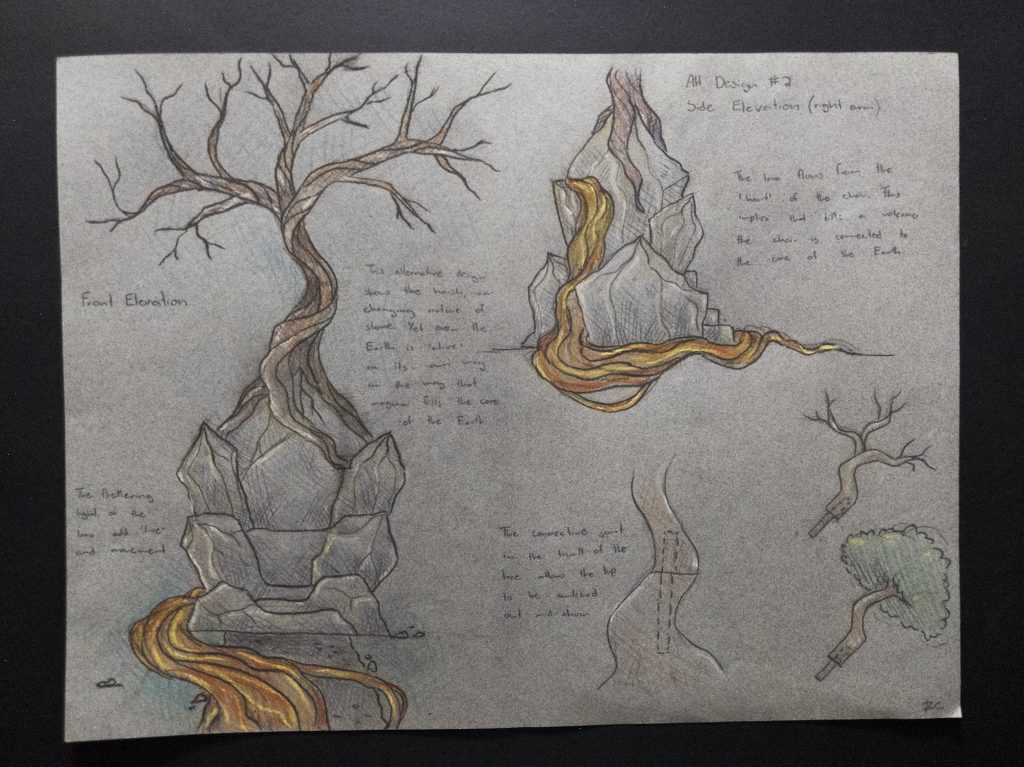 Alt Design #2
Side Elevation (right arm)
The lava flows from the
'heart' of the chair. This
implies that like a volcano
the chair is connected to
the core of the Earth
Front Elevation
This alternative design
shows the harsh, un
changing nature of
stone. Yet even the
Earth is 'alive'
in its own way
in the way that
magma fills the core
of the Earth
The flickering
light of the
lava add 'live'
and movement
The connective joint
in the trunk of the
tree allows the top
to be switched
out mid-show
RC